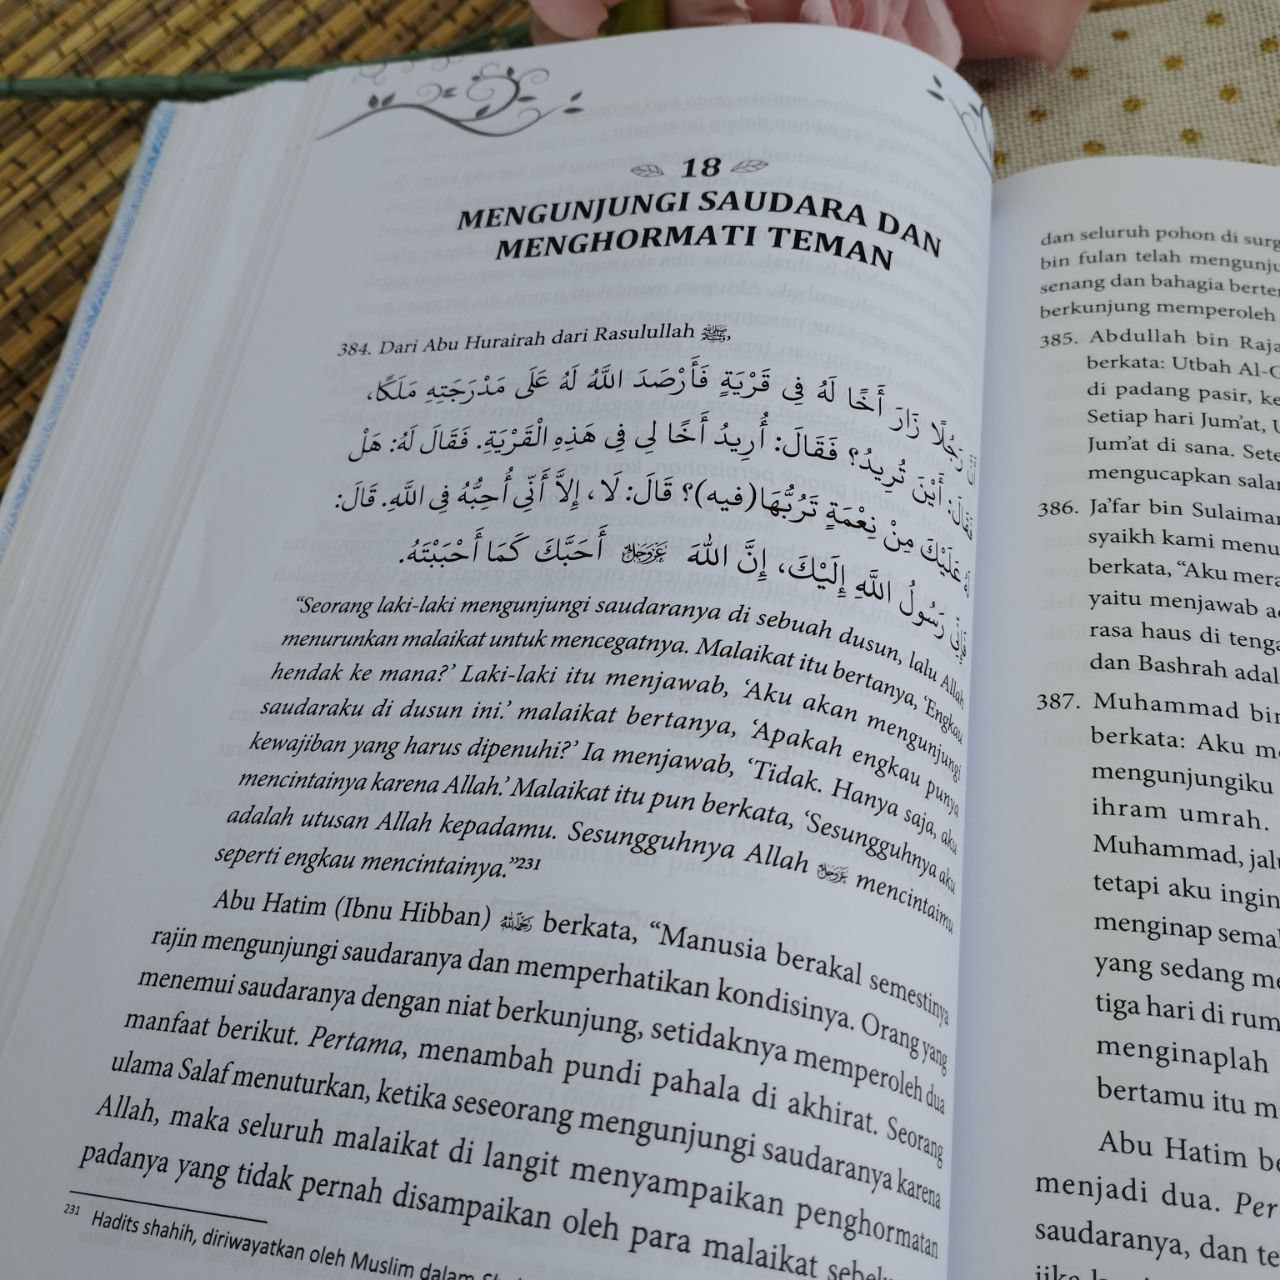 18
MENGUNJUNGI SAUDARA DAN
MENGHORMATI TEMAN
384. Dari Abu Hurairah dari Rasulullah ﷺ,
أَنَّ رَجُلًا زَارَ أَخًا لَهُ فِي قَرْيَةٍ فَأَرْصَدَ اللَّهُ لَهُ عَلَى مَدْرَجَتِهِ مَلَكًا،
فَقَالَ: أَيْنَ تُرِيدُ؟ فَقَالَ: أُرِيدُ أَخًا لِي فِي هَذِهِ الْقَرْيَةِ. فَقَالَ لَهُ: هَلْ
لَهُ عَلَيْكَ مِنْ نِعْمَةٍ تَرُبُّهَا (فيه)؟ قَالَ: لَا، إِلَّا أَنِّي أُحِبُّهُ فِي اللَّهِ. قَالَ:
فَإِنِّي رَسُولُ اللَّهِ إِلَيْكَ، إِنَّ اللَّهَ عَزَّوَجَلَّ أَحَبَّكَ كَمَا أَحْبَبْتَهُ.
“Seorang laki-laki mengunjungi saudaranya di sebuah dusun, lalu Allah
menurunkan malaikat untuk mencegatnya. Malaikat itu bertanya, ‘Engkau
hendak ke mana?’ Laki-laki itu menjawab, ‘Aku akan mengunjungi
saudaraku di dusun ini.’ malaikat bertanya, ‘Apakah engkau punya
kewajiban yang harus dipenuhi?’ Ia menjawab, ‘Tidak. Hanya saja, aku
mencintainya karena Allah.’ Malaikat itu pun berkata, ‘Sesungguhnya aku
adalah utusan Allah kepadamu. Sesungguhnya Allah عَزَّوَجَلَّ mencintaimu
seperti engkau mencintainya.”231
Abu Hatim (Ibnu Hibban) رحمه الله berkata, “Manusia berakal semestinya
rajin mengunjungi saudaranya dan memperhatikan kondisinya. Orang yang
menemui saudaranya dengan niat berkunjung, setidaknya memperoleh dua
manfaat berikut. Pertama, menambah pundi pahala di akhirat. Seorang
ulama Salaf menuturkan, ketika seseorang mengunjungi saudaranya karena
Allah, maka seluruh malaikat di langit menyampaikan penghormatan
padanya yang tidak pernah disampaikan oleh para malaikat
231 Hadits shahih, diriwayatkan oleh Muslim dalam
dan seluruh pohon di
bin fulan telah
senang dan bahagia
berkunjung memperoleh
385. Abdullah bin
berkata: Utbah
di padang pasir,
Setiap hari Jum’at,
Jum’at di sana.
mengucapkan
386. Ja’far bin Sulaiman
syaikh kami
berkata, “Aku
yaitu menjawab
rasa haus di
dan Bashrah
387. Muhammad bin
berkata: Aku
mengunjungiku
ihram umrah.
Muhammad,
tetapi aku ingin
menginap
yang sedang
tiga hari di
menginaplah
bertamu itu
Abu Hatim
menjadi dua.
saudaranya, dan
jika